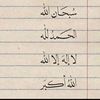 سُبْحَانَ الله
الحَمْدُ لِلّه
لا إِلهَ إِلّا الله
اللهُ أَكْبَر